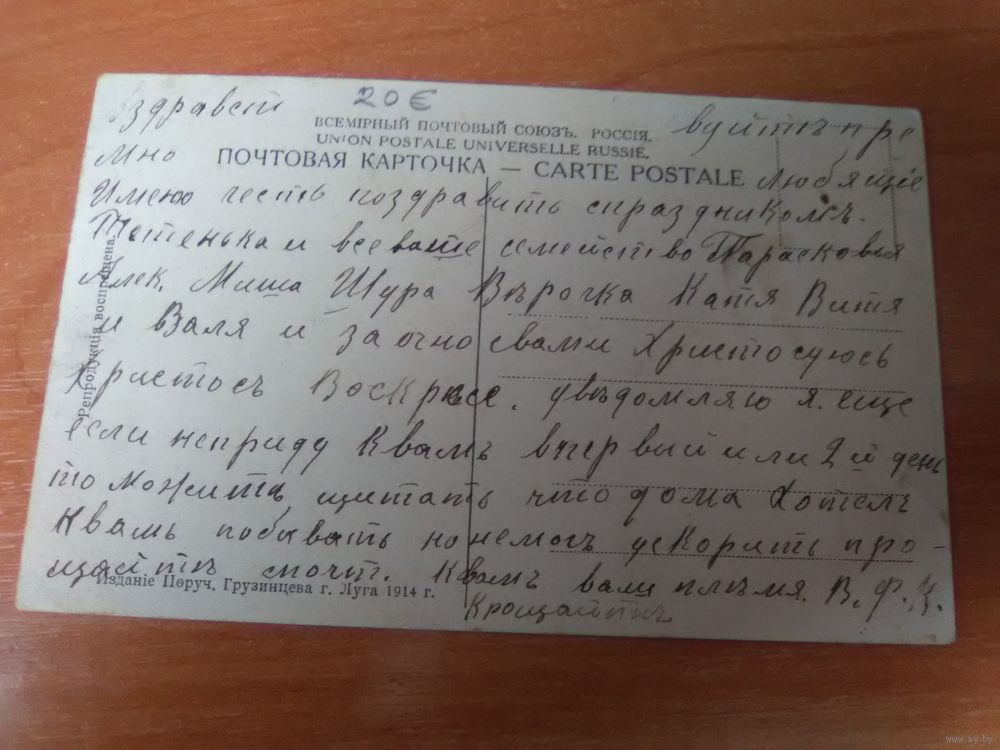 Здравст 20€ вуйтъ пре
ВСЕМІРНЫЙ ПОЧТОВЫЙ СОЮЗЪ. РОССІЯ.
UNION POSTALE UNIVERSELLE RUSSIE.
Мно ПОЧТОВАЯ КАРТОЧКА — CARTE POSTALE любящіе
Имею честь поздравить спраздникомъ.
Тетенька и все ваше семейство Парасковья
Алек. Миша Шура Вѣрочка Катя Витя
и Валя и заочно свами Христосуюсь
Христосъ Воскресе. увѣдомляю я. еще
если неприду Квамъ впервый или 2й день
то можить щитать что дома Хотелъ
Квамъ побывать но немогъ ускорить про-
щайтъ Квамъ ваш племя. В. Ф. К.
Издание Поруч. Грузинцева г. Луга 1914 г.
Репродукція воспрещена.
www.ay.by